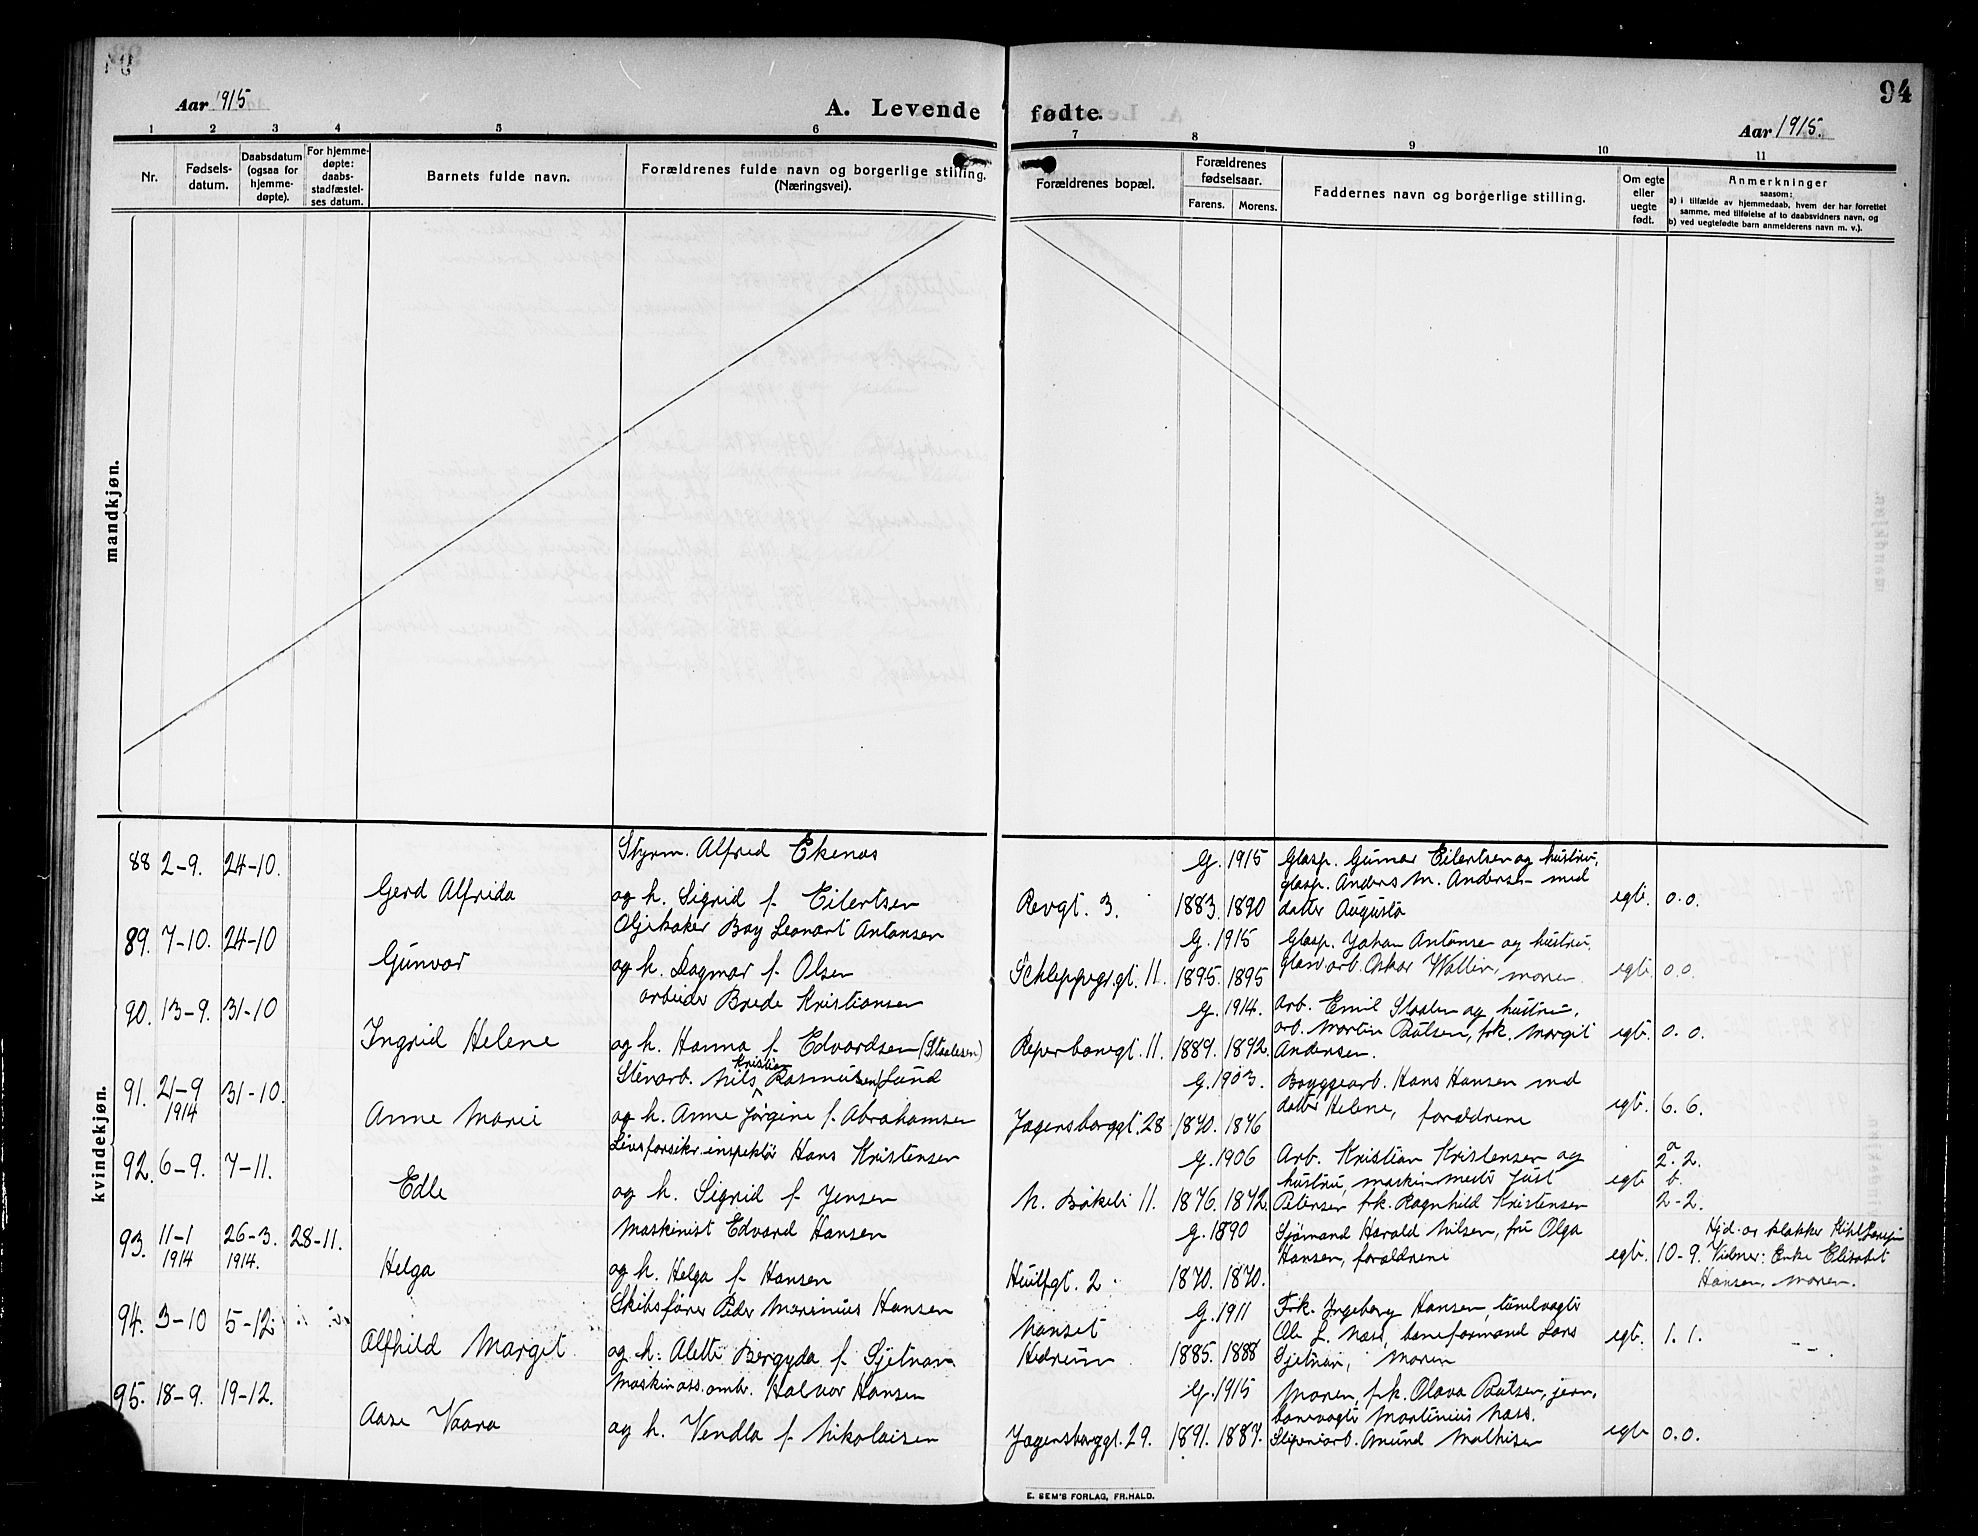 94
Aar 1915
A. Levende fødte.
Aar 1915.
1 2 3 4 5 6 7 8 9 10 11
Nr.
Fødsels-
datum.
Daabsdatum
(ogsaa for
hjemme-
døpte).
For hjemme-
døpte:
daabs-
stadfæstel-
ses datum.
Barnets fulde navn.
Forældrenes fulde navn og borgerlige stilling.
(Næringsvei).
Forældrenes bopæl.
Forældrenes
fødselsaar.
Farens. Morens.
Faddernes navn og borgerlige stilling.
Om egte
eller
uegte
født.
Anmerkninger
saasom:
a) i tilfælde av hjemmedaab, hvem der har forrettet
samme, med tilføielse af to daabsvidners navn, og
b) ved uegtefødte barn anmelderens navn m. v.).
mandkjøn.
kvindekjøn.
88 2-9. 24-10.
Gerd Alfrida
Styrm. Alfred Ekenas
og h. Sigrid f. Eilertsen
Revgt. 3.
G. 1915
1883. 1890
Glasp. Gunnar Eilertsen og hustru,
glasp. Anders M. Andersen med
datter Augusta
egte. 0.0.
89. 7-10. 24-10
Gunvor
Oljekoker Boy Leonart Antonsen
og h. Dagmar f. Olsen
Schleppegr.gt. 11.
G. 1915
1895. 1895
Glasp. Johan Antonsen og hustru,
glasv.arb. Oskar Wallin, moren
egte 0.0.
90. 13-9. 31-10
Ingrid Helene
arbeider Brede Kristiansen
og h. Hanna f. Edvardsen (Staalesen)
Reperbanegt. 11.
G. 1914.
1889. 1892.
Arb. Emil Staalen og hustru,
arb. Martin Paulsen, frk. Margit
Andersen.
egte. 0.0.
91. 21-9 31-10.
1914
Anne Marie
Kristian
Stenarb. Nils Rasmussen Lund
og h. Anne Jørgine f. Abrahamsen
Jegersborggt. 28
G. 1903.
1870. 1876
Byggearb. Hans Hansen med
datter Helene, forældrene
egte. 6.6.
92. 6-9. 7-11.
Edle
Livsforsikr. inspektör Hans Kristensen
og h. Sigrid f. Jensen
N. Bøkeli 11.
G. 1906
1876. 1872.
Arb. Kristian Kristensen og
hustru, maskinmester Just
Petersen frk. Ragnhild Kristensen
egte
a
2. 2.
b.
2-2.
93. 11-1 26-3. 28-11.
1914 1914.
Helga
Maskinist Edvard Hansen
og h. Helga f. Hansen
Huitfgt. 2
G. 1890
1870. 1870.
Sjömand Harald Nilsen, fru Olga
Hansen, forældrene
egte. 10-9.
Hjd. av klokker
Vidner: Enke Elisabet
Hansen, moren.
94. 3-10 5-12.
Alfhild Margit
Skibsfører Peder Marinius Hansen
og h: Alette Bergyda f. Sjetnan
Nanset
Hedrum
G. 1911
1885. 1888
Frk. Ingeborg Hansen, tunelvagt
Ole L. Næss, baneformand Lars
Sjetnan, moren
egte. 1.1.
95. 18-9. 19-12.
Aase Vaara
Maskinass. ombr. Halvor Hansen
og h. Vendla f. Nikolaisen
Jegersborggt. 29.
G. 1915
1891. 1887.
Moren, frk. Olava Paulsen, jern,
banevagt Martinius Næss.
Sliperiarb. Amund Mathisen
egte 0.0.
E. SEM'S FORLAG, FR.HALD.